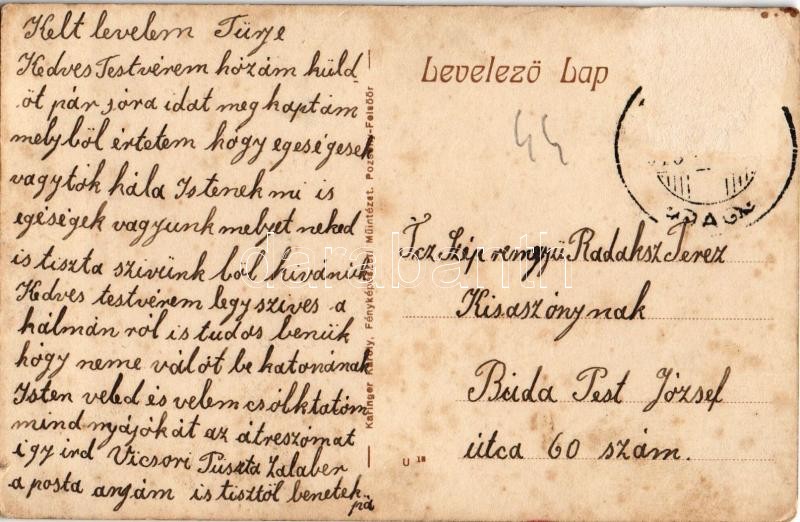 Kelt levelem Türje
Kedves Testvérem hozám küld
öt pár sóra idat meg kaptam
melyből értetem hogy egeségesek
vagytók hála Istenek mi is
egéségek vagyunk melyet neked
is tiszta szivünk ból kivánúk
Kedves testvérem legy szives a
hálmán ról is tudos benük
hógy neme válót be katonának
Isten veled és velem csólktatóm
mind nyájókát az átreszómat
igy ird Vicsori Puszta Zalaber
a posta anyám is tisztöl benetek
pá
Karinger Károly, Fényképészeti Műintézet. Pozsony-Felsőőr
Levelező Lap
44
Tcz Szép remgyü Radaksz Terez
Kisaszónynak
Buda Pest József
útca 60 szám.
U 18
darabanth